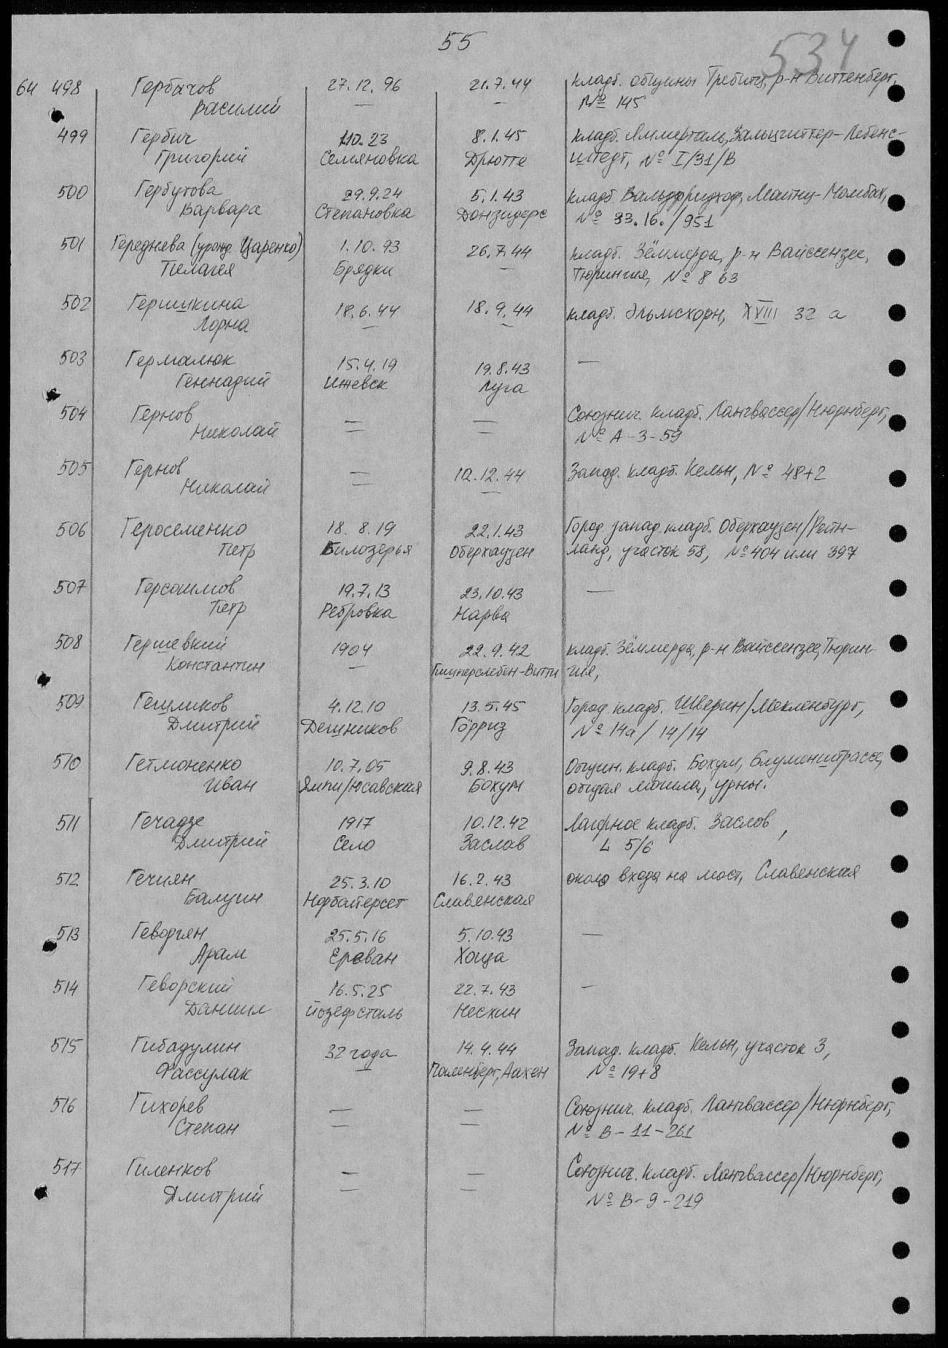 55
534
64 498 Гербачов 27.12.96 21.7.44 кладб. общины Требитц, р-н Виттенберг,
Василий — — № 145
499 Гербич 10.23 8.1.45 кладб. Аммерталь, Зальцгиттер-Лебенс-
Григорий Семяновка Дрютте штедт, № I/31/В
500 Гербутова 29.9.24 5.1.43 кладб. Вальдфридхоф, Маинц-Момбах,
Варвара Степановка Донзидерс № 33.16./951
501 Гереднева (урожд. Царенко) 1.10.93 26.7.44 кладб. Зёммерда, р-н Вайссензее,
Пелагея Брядки — Тюрингия, № 8 63
502 Геришкина 18.6.44 18.9.44 кладб. Эльмсхорн, XVIII 32 а
Лорна — —
503 Гермалюк 15.4.19 19.8.43 —
Геннадий Ижевск Луга
504 Гернов — — Союзнич. кладб. Лангвассер/Нюрнберг,
Николай — — № А-3-59
505 Гернов — 12.12.44 Запад. кладб. Кельн, № 48+2
Николай — —
506 Геросеменко 18.8.19 22.1.43 Город. запад. кладб. Оберхаузен/Рейн-
Петр Билозерья Оберхаузен ланд, участок 58, № 404 или 397
507 Герсошмов 19.7.13 23.10.43 —
Петр Ребровка Нарва
508 Гершевкий 1904 22.9.42 кладб. Зёммерда, р-н Вайссензее, Тюрин-
Константин — гия,
509 Гешликов 4.12.10 13.5.45 Город. кладб. Шверин/Мекленбург,
Дмитрий Дешников Гёрриз № 14а/ 14/14
510 Гетмоненко 10.7.05 9.8.43 Общин. кладб. Бохум, Блуменштрассе,
Иван Бохум общая могила, урны.
511 Гечадзе 1917 10.12.42 Лагерное кладб. Заслов,
Дмитрий Село Заслав L 5/6
512 Гечиян 25.3.10 16.2.43 около входа на мост, Славенская
Балуин Норбайерсет Славянская
513 Геворгян 25.5.16 5.10.43 —
Арам Ереван Хоща
514 Геворский 16.5.25 22.7.43 —
Даниил Йозефсталь Несхин
515 Гибадулин 32 года 14.4.44 Запад. кладб. Кельн, участок 3,
Фассулак — Паленберг, Аахен № 19+8
516 Гихорев — — Союзнич. кладб. Лангвассер/Нюрнберг,
Степан — — № В-11-261
517 Гиленков — — Союзнич. кладб. Лангвассер/Нюрнберг,
Дмитрий — — № В-9-219